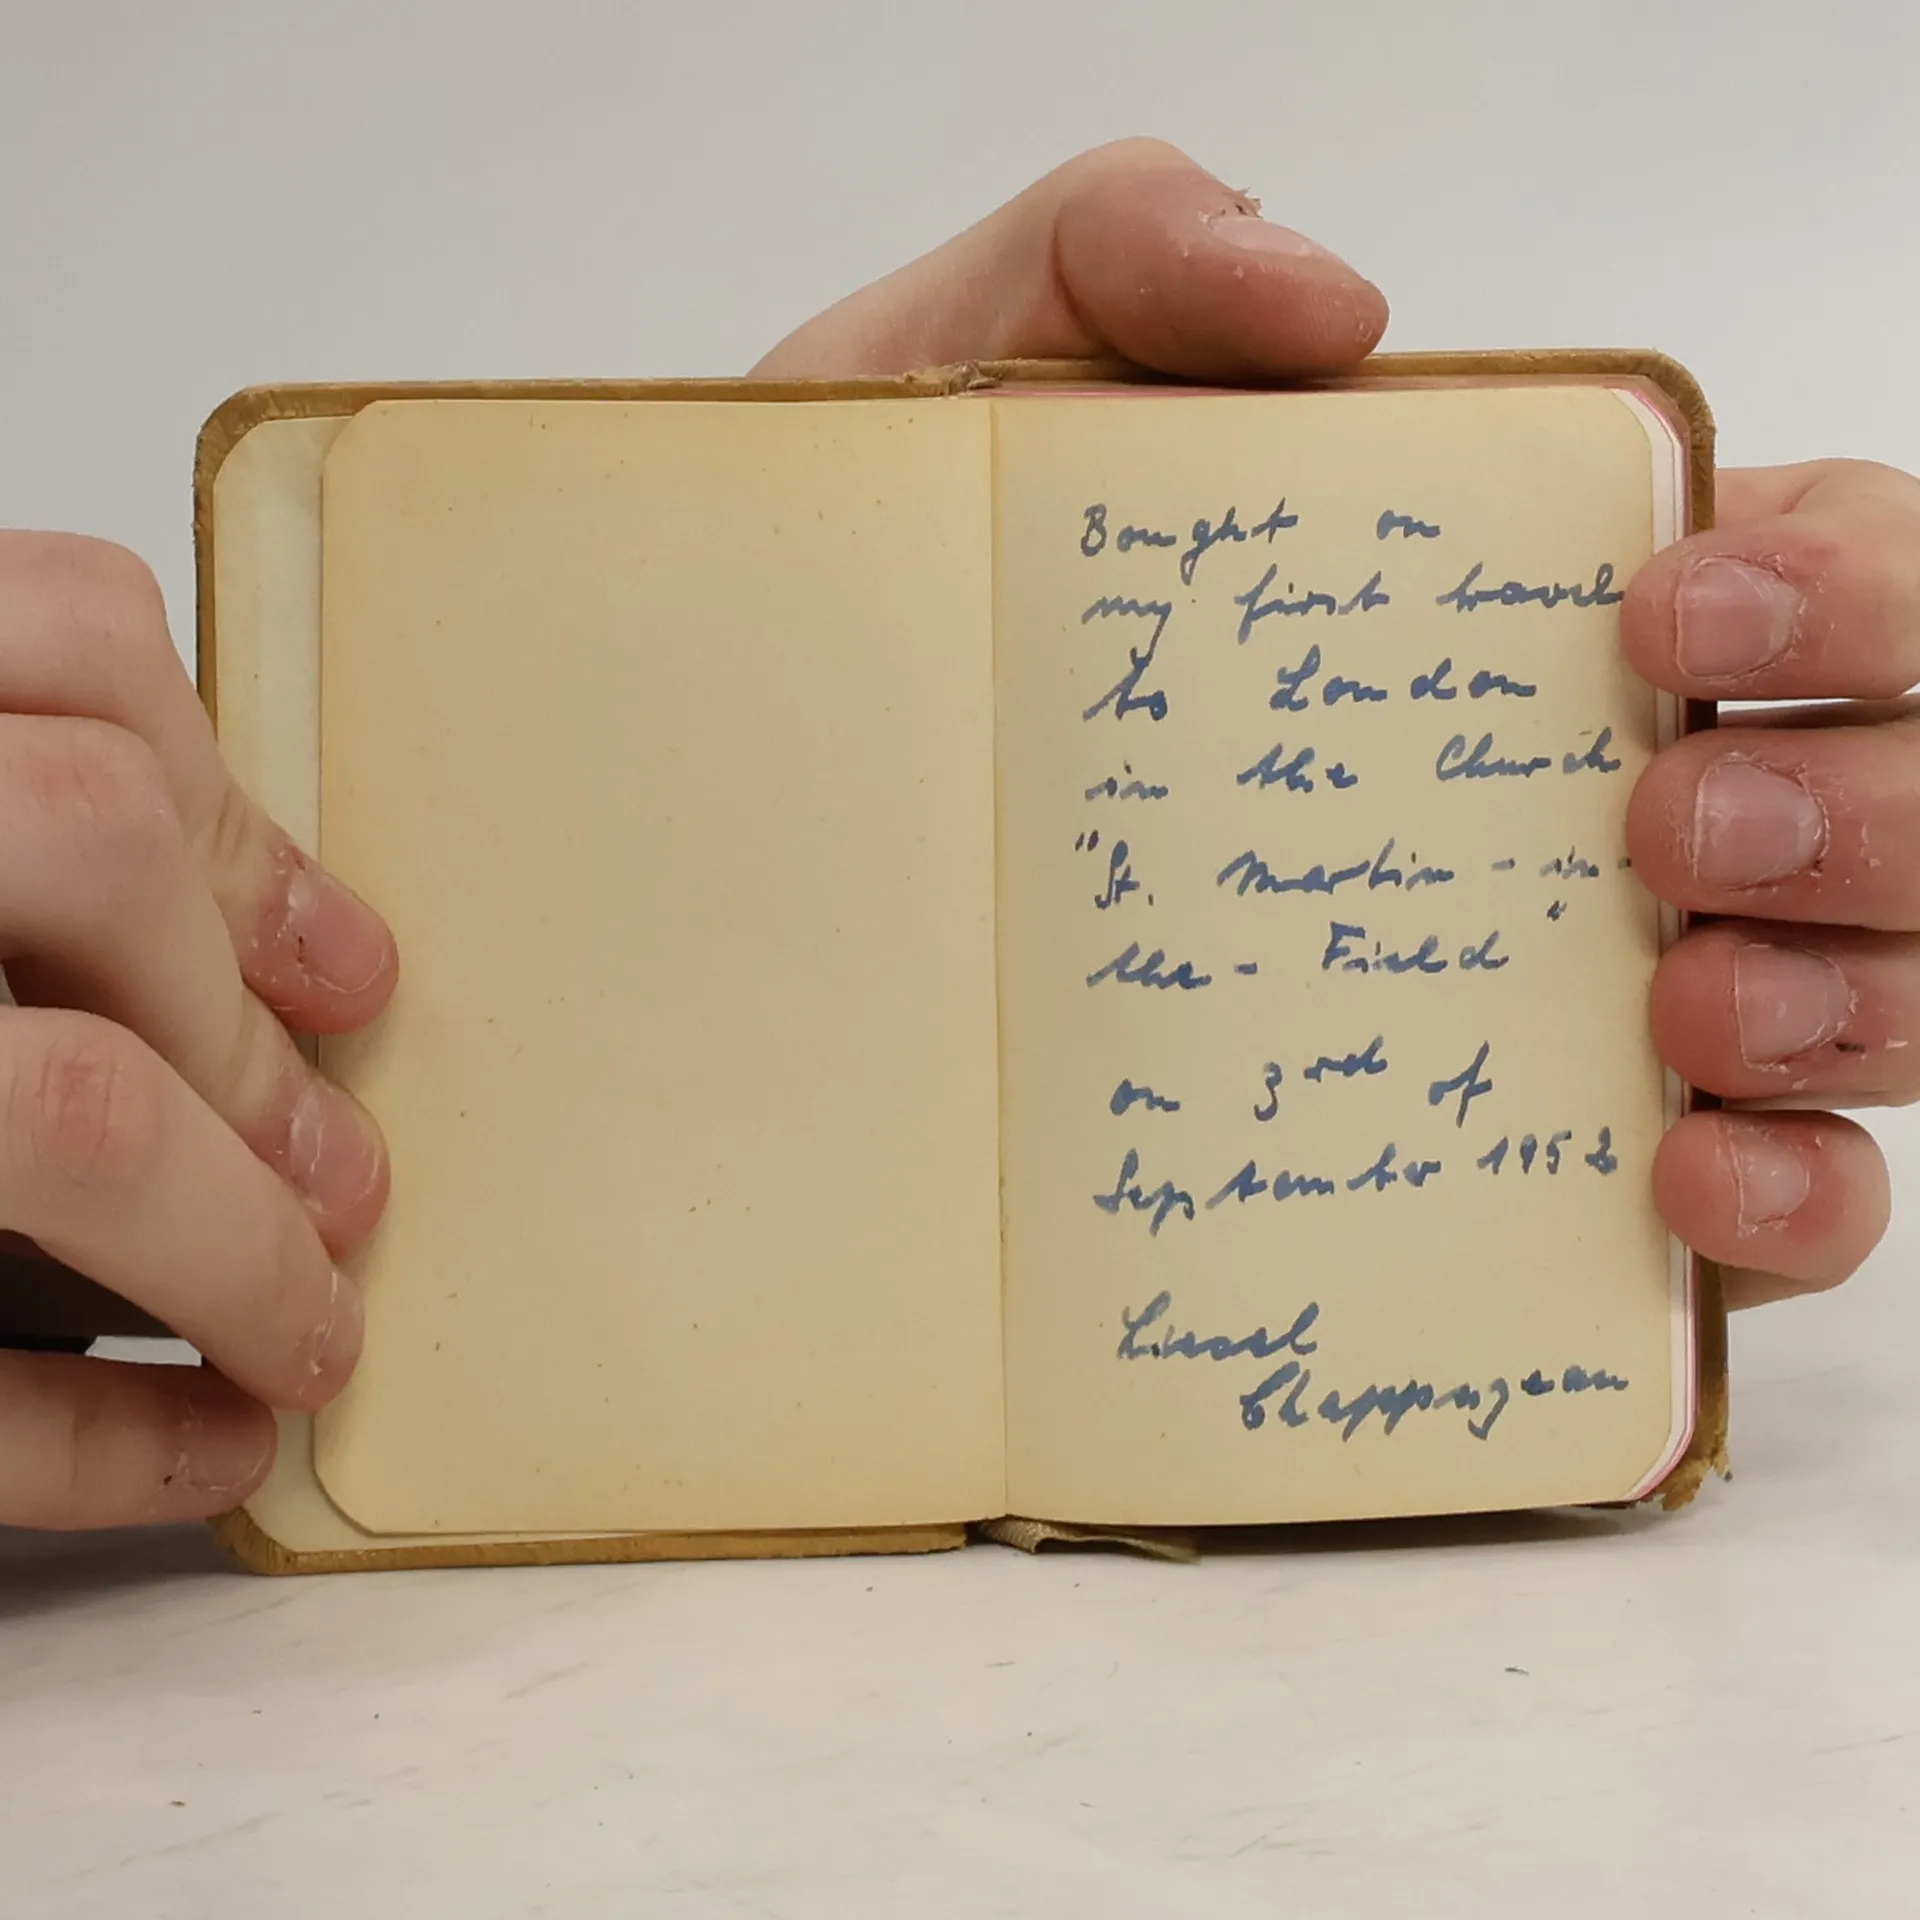 Bought on
my first travel
to London
in the Church
"St. Martin - in -
the - Field"
on 3rd of
September 1952